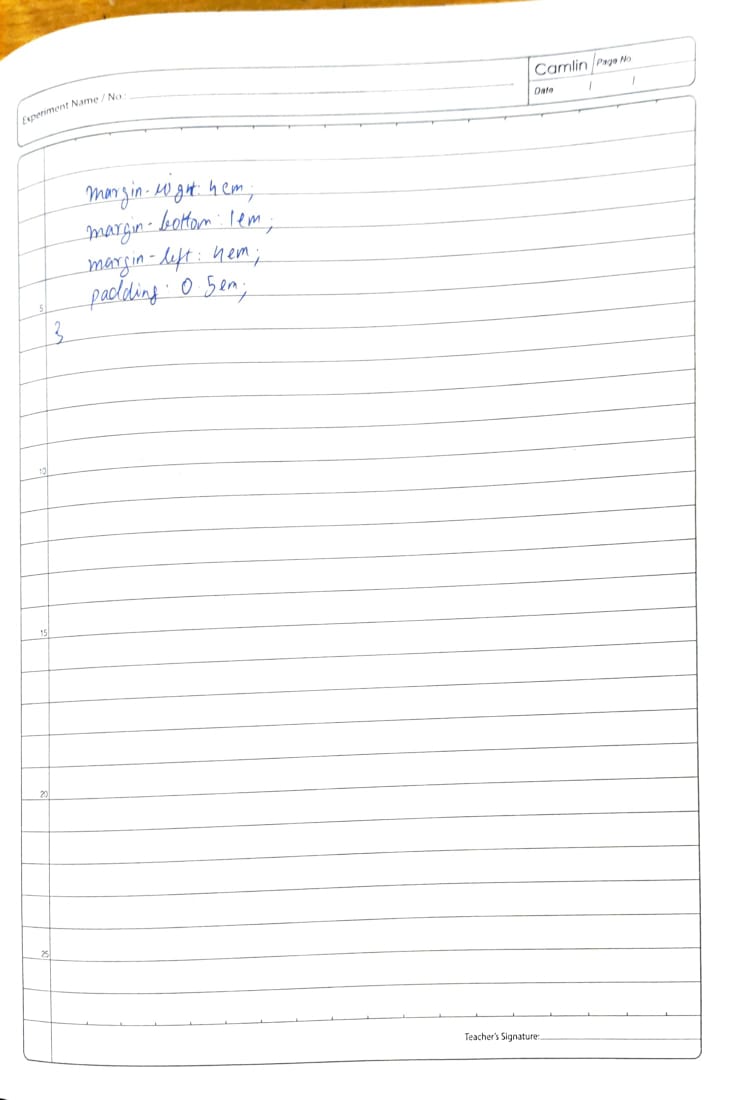 Camlin Page No
Experiment Name / No.:
Date / /
margin-right: 4em;
margin-bottom: 1em;
margin-left: 4em;
padding: 0.5em;
5
}
10
15
20
25
Teacher's Signature: